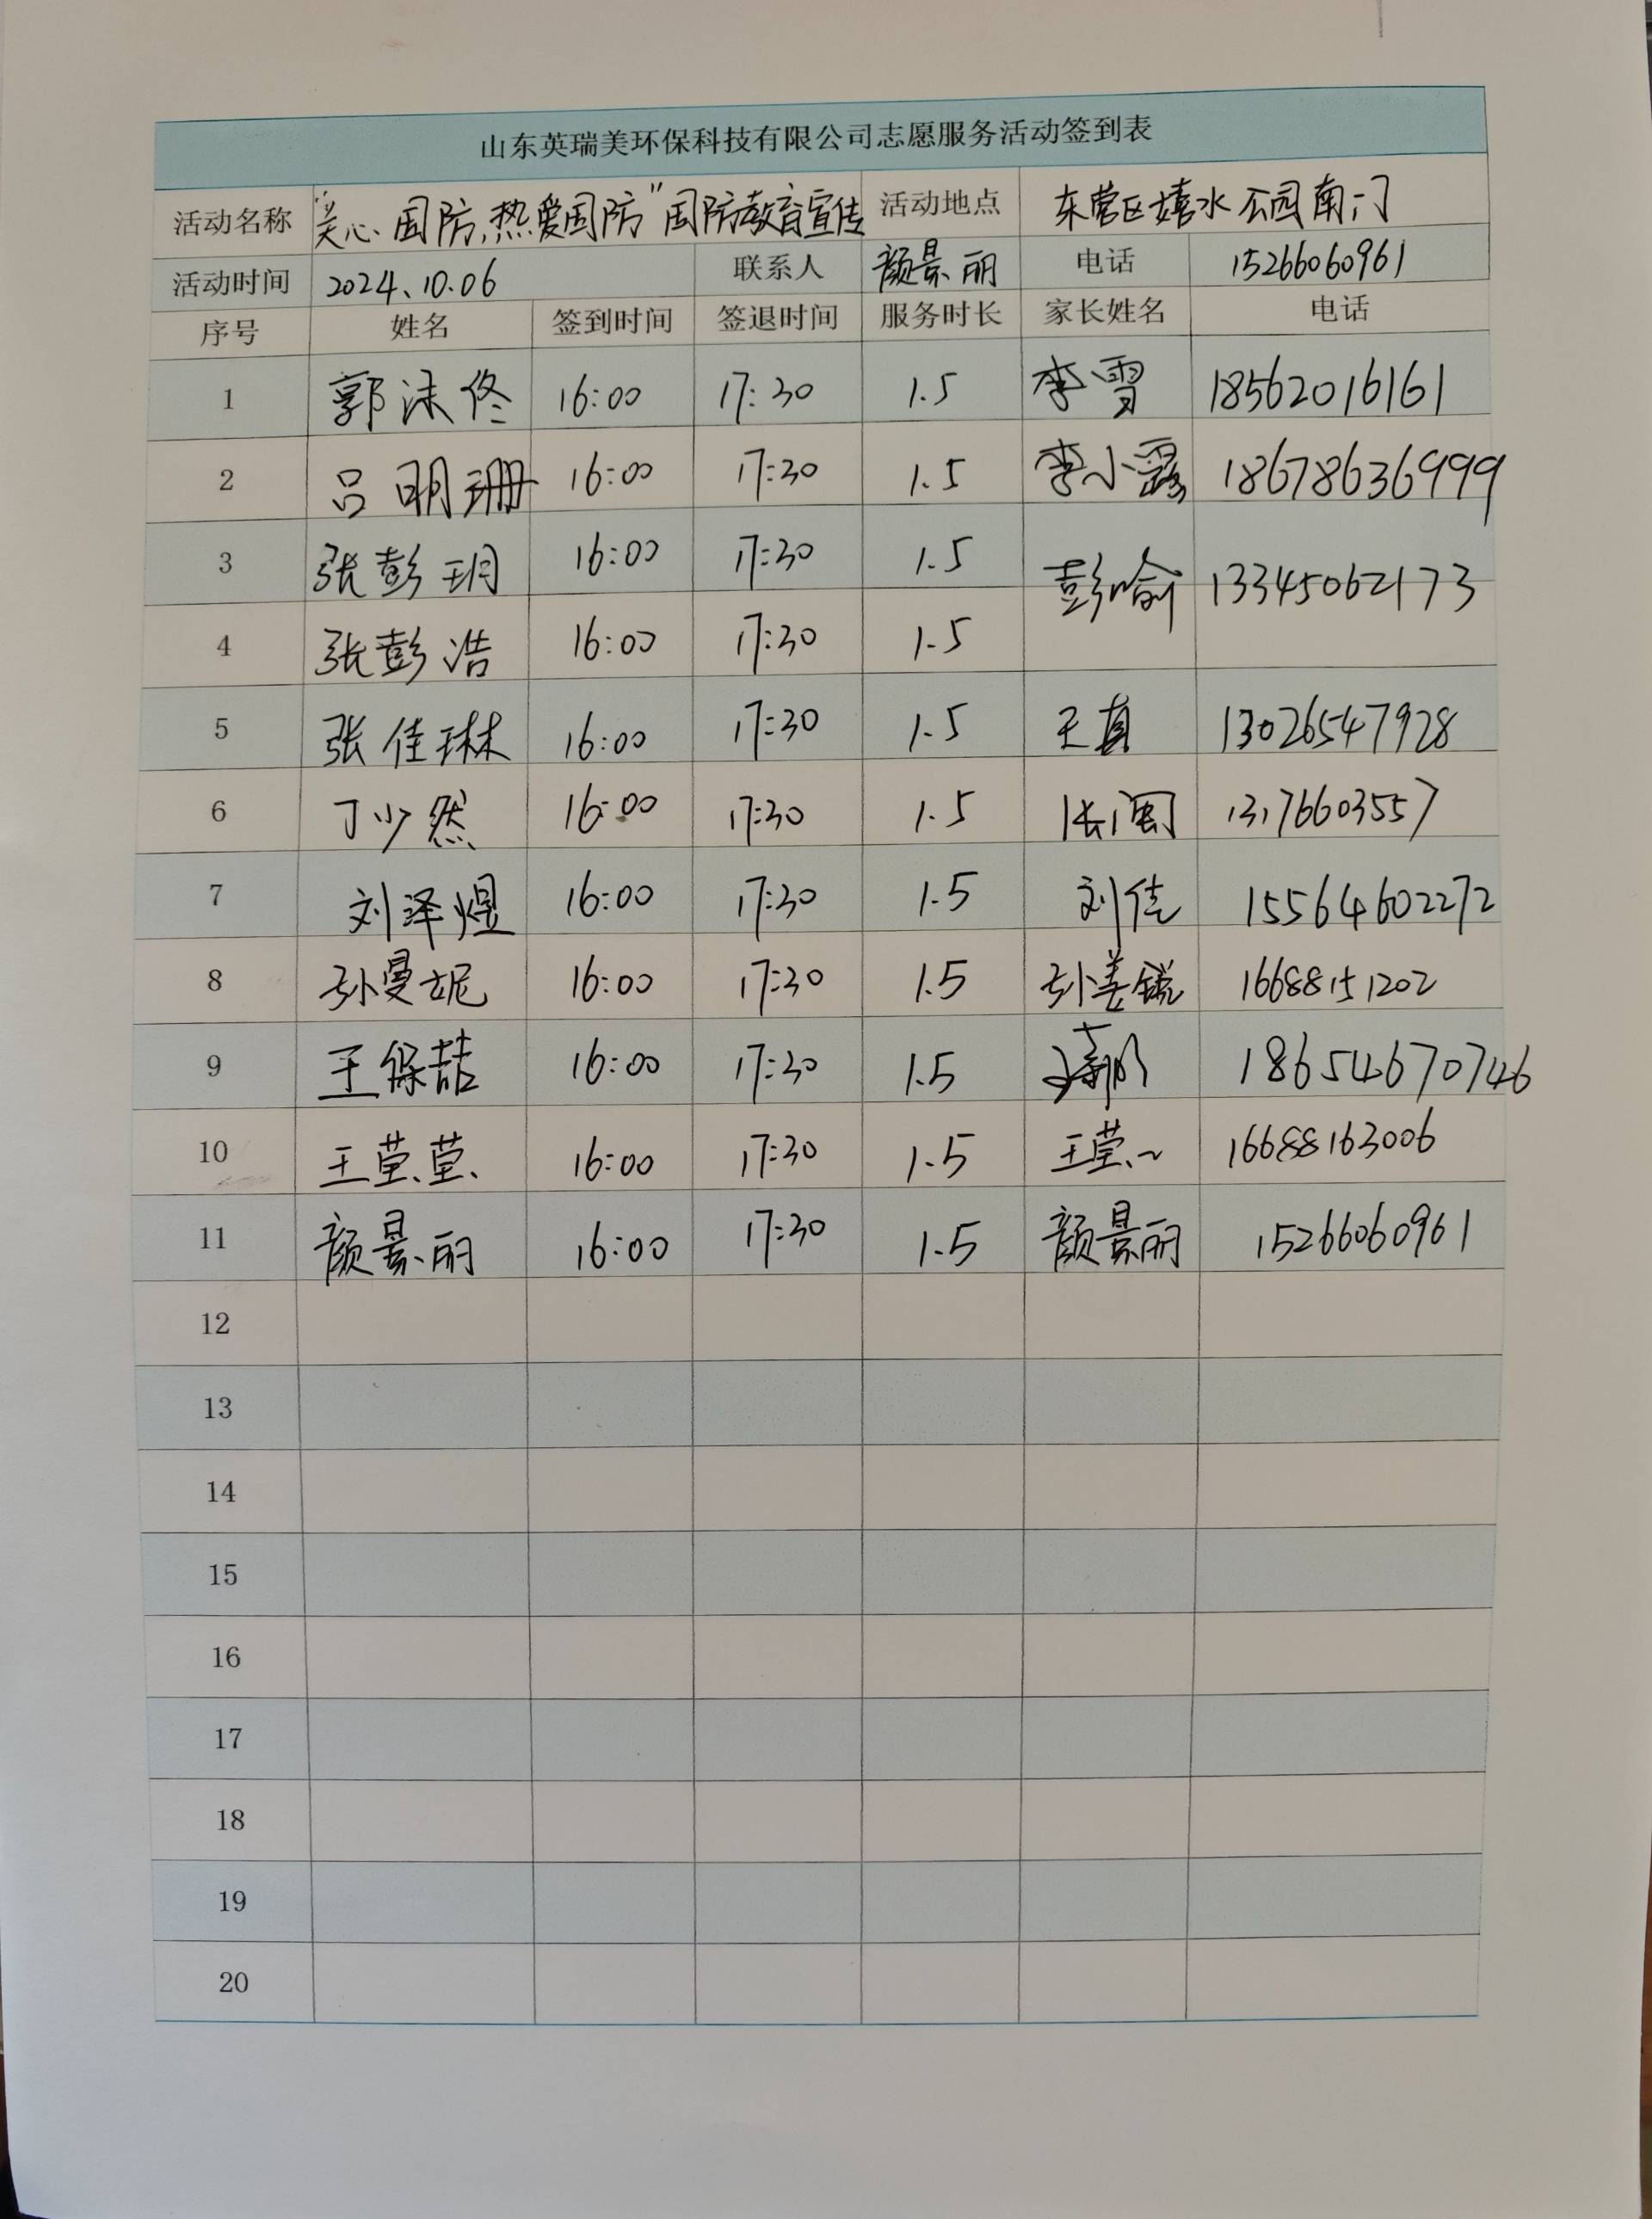 山东英瑞美环保科技有限公司志愿服务活动签到表
活动名称 "关心国防,热爱国防"国防教育宣传 活动地点 东营区嬉水公园南门
活动时间 2024.10.06 联系人 颜景丽 电话 15266060961
序号 姓名 签到时间 签退时间 服务时长 家长姓名 电话
1 郭沫佟 16:00 17:30 1.5 李雪 18562016161
2 吕明珊 16:00 17:30 1.5 李小露 18678636999
3 张彭玥 16:00 17:30 1.5 彭喻 13345062173
4 张彭浩 16:00 17:30 1.5
5 张佳琳 16:00 17:30 1.5 王真 13026547928
6 丁少然 16:00 17:30 1.5 13176603557
7 刘泽煜 16:00 17:30 1.5 刘佳 15564602272
8 孙曼妮 16:00 17:30 1.5 孙善锐 16688151202
9 王保喆 16:00 17:30 1.5 18654670746
10 王莹莹 16:00 17:30 1.5 王莹~ 16688163006
11 颜景丽 16:00 17:30 1.5 颜景丽 15266060961
12
13
14
15
16
17
18
19
20